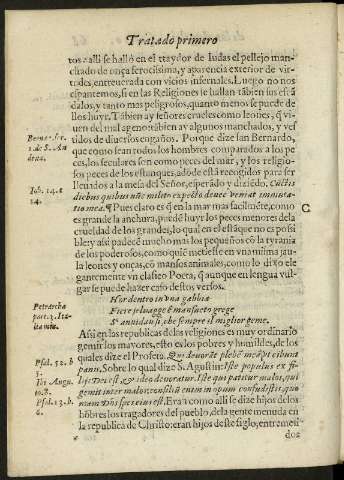 Tratado primero
tos: alli se halló en el traydor de Iudas el pellejo man-
chado de onça ferocissima, y aparencia exterior de vir-
tudes, entreuerada con vicios infernales. Luego no nos
espantemos, si en las Religiones se hallan tãbien sus escã
dalos, y tanto mas peligrosos, quanto menos se puede de
llos huyr. Tãbien ay señores crueles como leones, q̃ vi-
uen del mal ageno: tãbien ay algunos manchados, y ves
tidos de diuersos engaños. Porque dize san Bernardo,
que como sean todos los hombres comparados a los pe-
ces, los seculares son como peces del mar, y los religio-
sos peces de los estanques, adõde està recogidos para ser
lleuados a la mesa del Señor, esperãdo y diziẽdo. Cũctis
diebus quibus nũc milito expecto donec veniat immuta-
tio mea. ¶ Pues claro es q̃ en la mar mas facilmẽte, como
es grande la anchura, puedẽ huyr los peces menores de la
crueldad de los grandes, lo qual en el estãque no es possi
ble: y assi padecẽ mucho mas los pequeños cõ la tyrania
de los poderosos, como quiẽ metiesse en vna misma jau-
la leones y onças, cõ mansos animales, como lo dixo ele
gantemente vn classico Poeta, q̃ aunque en lengua vul-
gar se puede hazer caso destos versos.
Hor dentro in vna gabbia
Fiere seluagge è mansuete grege
S'annidansi, che sempre il miglior geme.
Assi en las republicas de los religiones es muy ordinario
gemir los mayores, esto es los pobres y humildes, de los
quales dize el Profeta. Qui deuorãt plebẽ meã vt cibum
panis. Sobre lo qual dize S. Agustin: Iste populus ex fi-
lijs Dei est, & ideo deuoratur. Iste qui patitur malos, qui
gemit inter malos: consiliũ enim inopum confudistis, quo
niam Dñs spes eius est. Era como alli se dize hijos de los
hõbres los tragadores del pueblo, de la gente menuda en
la republica de Christo: eran hijos deste siglo, entreme-
dos
Iob. 14.c
14.
C
Petrarcha
part. 1.
Psal. 52. b
5.
Ibi Augu.
Psal. 13. b.
6.